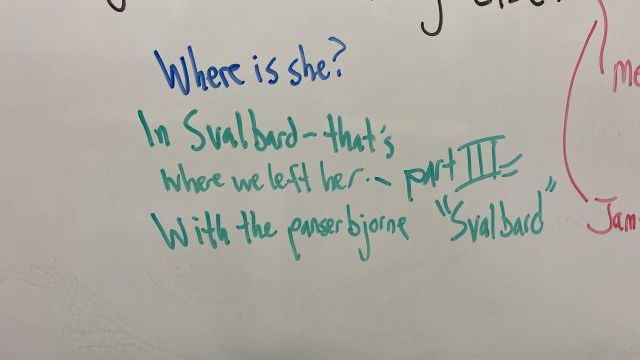 Where is she?
In Svalbard - that's
where we left her. - part III
With the panserbjorne "Svalbard"
Jam